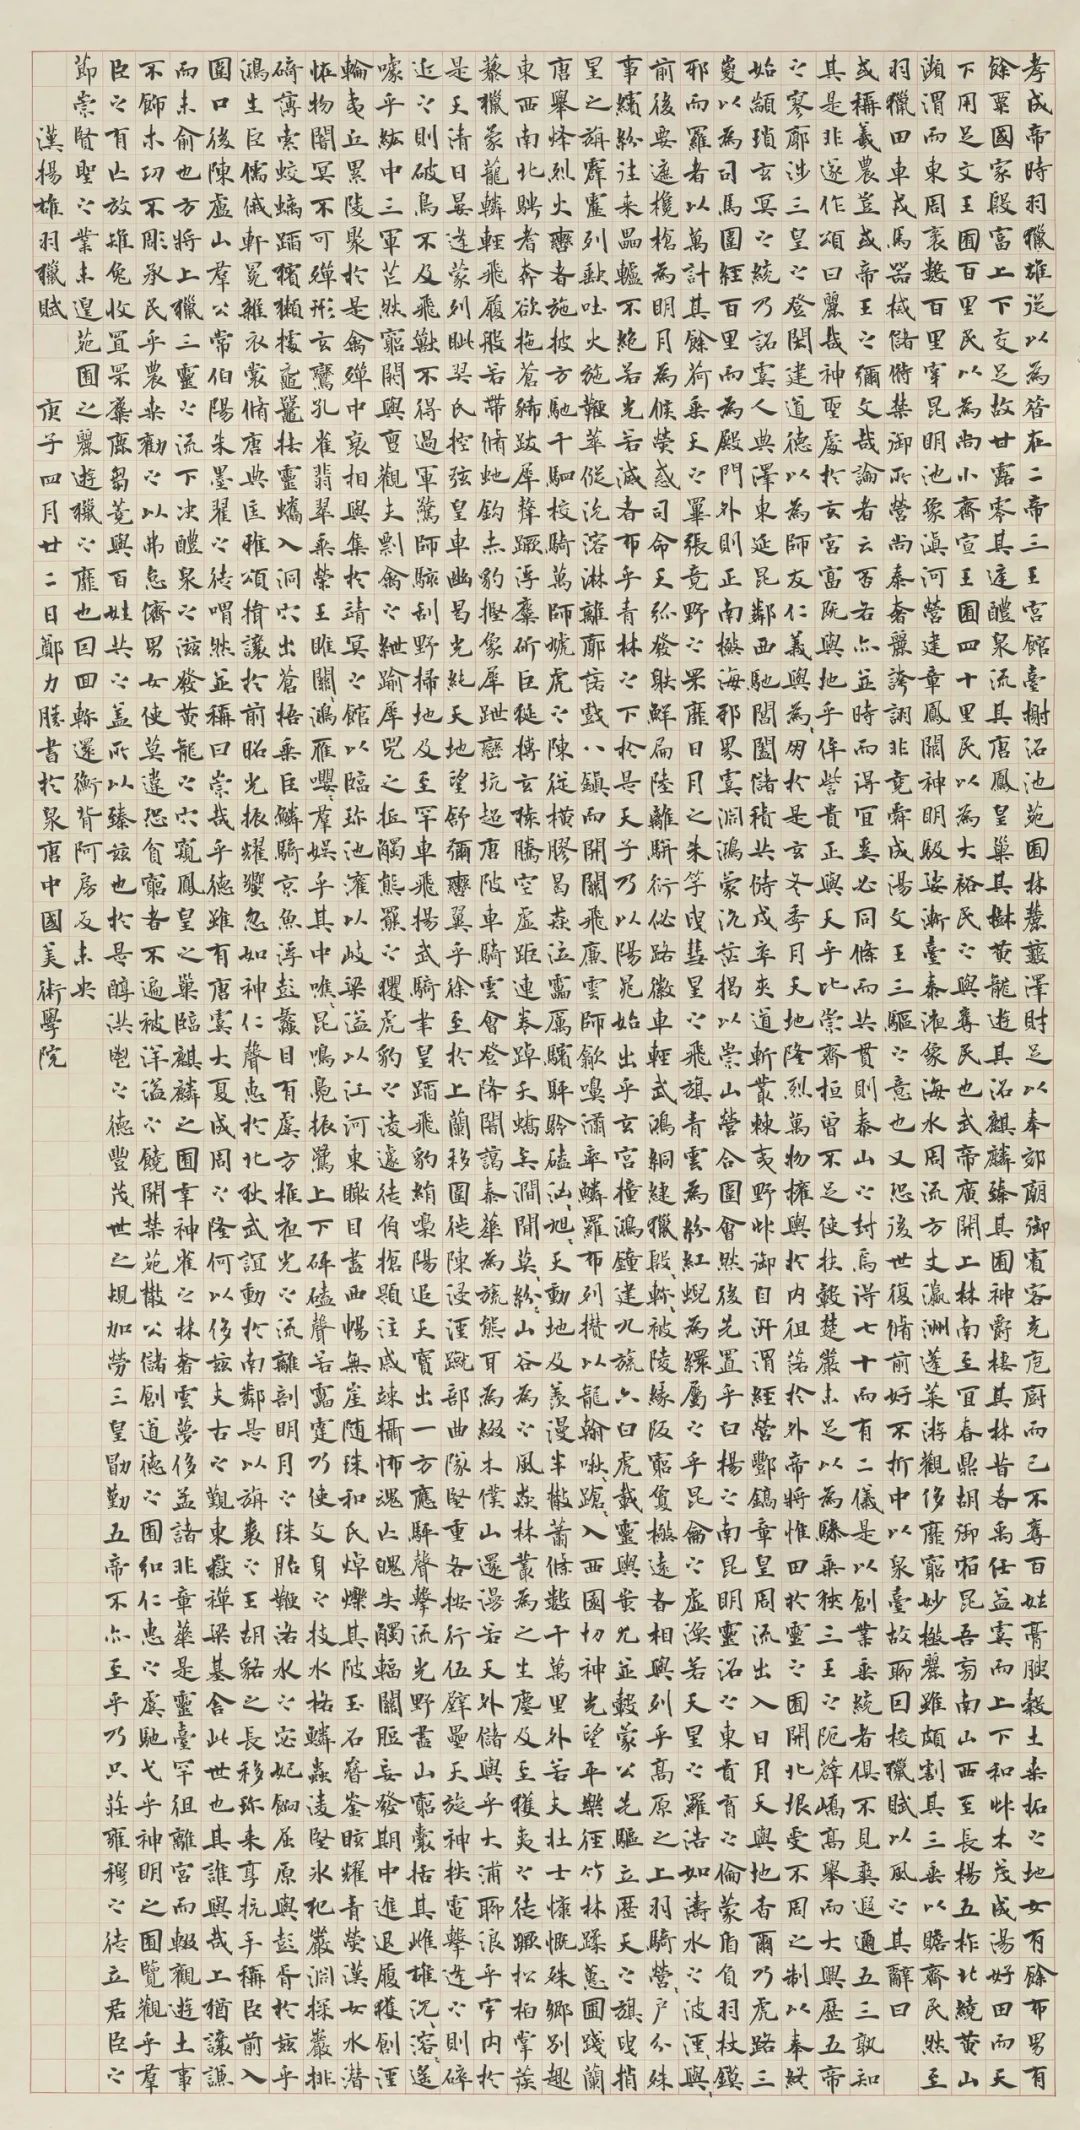 孝成帝時羽獵雄從以為昔在二帝三王宮館臺榭沼池苑囿林麓藪澤財足以奉郊廟御賓客充庖厨而已不奪百姓膏腴穀土桑柘〻地女有餘布男有
餘粟國家殷富上下交足故甘露零其庭醴泉流其唐鳳皇巢其樹黄龍遊其沼麒麟臻其囿神爵棲其林昔者禹任益虞而上下和艸木茂成湯好田而天
下用足文王囿百里民以為尚小齊宣王囿四十里民以為大裕民〻與奪民也武帝廣開上林南至宜春鼎胡御宿昆吾旁南山西至長楊五柞北繞黄山
瀕渭而東周袤數百里穿昆明池象滇河營建章鳳闕神明馺娑漸臺泰液象海水周流方丈瀛洲蓬萊游觀侈靡窮妙極麗雖頗割其三垂以贍齊民然至
羽獵田車戎馬器械儲偫禁御所營尚泰奢麗誇詡非堯舜成湯文王三驅〻意也又恐後世復脩前好不折中以泉臺故聊因校獵賦以風〻其辭曰
或稱羲農豈或帝王〻彌文哉論者云否各亦並時而得宜奚必同條而共貫則泰山〻封烏得七十而有二儀是以創業垂統者俱不見其爽遐邇五三孰知
其是非遂作頌曰麗哉神聖處於玄宮富既與地乎侔訾貴正與天乎比崇齊桓曾不足使扶轂楚嚴未足以為驂乘狹三王〻阨薜嶠高舉而大興歷五帝
〻寥廓涉三皇〻登閎建道德以為師友仁義與為朋於是玄冬季月天地隆烈萬物擁與於内徂落於外帝將惟田於靈〻囿開北垠受不周之制以奉終
始顓頊玄冥〻統乃詔虞人典澤東延昆鄰西馳閶闔儲積共偫戍卒夾道斬叢棘夷野艸御自汧渭經營酆鎬章皇周流出入日月天與地杳爾乃虎路三
嵏以為司馬圍經百里而為殿門外則正南極海邪界虞淵鴻蒙沆茫揭以崇山營合圍會然後先置乎白楊〻南昆明靈沼〻東賁育〻倫蒙盾負羽杖鏌
邪而羅者以萬計其餘荷垂天〻罼張竟野〻罘靡日月之朱竿曳彗星〻飛旗青雲為紛紅蜺為繯屬〻乎昆侖〻虛渙若天星〻羅浩如濤水〻波淫〻與〻
前後要遮欃槍為明月為候熒惑司命天弧發射鮮扁陸離駢衍佖路徽車輕武鴻絧緁獵殷〻軫〻被陵緣阪窮夐極遠者相與列乎高原之上羽騎營〻戶分殊
事繽紛往来轠轤不絶若光若滅者布乎青林〻下於是天子乃以陽晁始出乎玄宮撞鴻鐘建九旒六白虎載靈輿蚩尤並轂蒙公先驅立歷天〻旗曳捎
星之旃霹靂列缺吐火施鞭萃傱沇溶淋離廓落戲八鎮而開關飛廉雲師歙嚊瀟率鱗羅布列攢以龍翰啾〻蹌〻入西園切神光望平樂徑竹林蹂蕙圃踐蘭
唐舉烽烈火轡者施披方馳千駟校騎萬師虓虎〻陳從横膠葛猋泣靁厲驞駍駖磕洶〻旭〻天動地岋羨漫半散蕭條數千萬里外若夫壯士慷慨殊鄉別趣
東西南北騁耆奔欲拖蒼豨跋犀犛蹶浮麋斮巨狿搏玄猨騰空虛距連卷踔夭蟜娭澗間莫〻紛〻山谷為〻風猋林叢為之生塵及至獲夷〻徒蹶松柏掌蒺
藜獵蒙蘢轔輕飛履般首帶脩虵鈎赤豹摼象犀跇巒坑超唐陂車騎雲會登降闇藹泰華為旒熊耳為綴木僕山還漫若天外儲與乎大浦聊浪乎宇内於
是天清日晏逢蒙列眥羿氏控弦皇車幽輵光純天地望舒彌轡翼乎徐至於上蘭移圍徙陳浸淫蹵部曲隊堅重各按行伍壁壘天旋神抶電擊逢〻則碎
近〻則破鳥不及飛獸不得過軍驚師駭刮野掃地及至罕車飛揚武騎聿皇蹈飛豹絹嘄陽追天寶出一方應駍聲擊流光野盡山窮囊括其雌雄沈〻溶〻遙
噱乎紘中三軍芒然窮冘閼與亶觀夫剽禽〻紲踰犀兕之抵觸熊羆〻玃虎豹〻凌遽徒角搶題注戚竦讋怖魂亡魄失觸輻關脰妄發期中進退履獲創淫
輪夷丘累陵聚於是禽殫中衰相與集於靖冥〻館以臨珍池灌以岐梁溢以江河東瞰目盡西暢無崖隨珠和氏焯爍其陂玉石嶜崟眩耀青熒漢女水潛
恠物闇冥不可殫形玄鸞孔雀翡翠垂榮王雎關〻鴻雁嚶〻羣娛乎其中噍〻昆鳴鳧振鷺上下砰磕聲若靁霆乃使文身〻技水格鱗蟲凌堅冰犯嚴淵探巖排
碕薄索蛟螭蹈獱獺據黿鼉抾靈蠵入洞穴出蒼梧乘巨鱗騎京魚浮彭蠡目有虞方椎夜光〻流離剖明月〻珠胎鞭洛水〻宓妃餉屈原與彭胥於兹乎
鴻生臣儒俄軒冕雜衣裳脩唐典匡雅頌揖讓於前昭光振耀蠁忽如神仁聲惠於北狄武誼動於南鄰是以旃裘〻王胡貉之長移珍来享抗手稱臣前入
圍口後陳盧山羣公常伯陽朱墨翟〻徒喟然並稱曰崇哉乎德雖有唐虞大夏成周〻隆何以侈兹夫古〻覲東嶽禪梁基舍此世也其誰與哉上猶讓謙
而未俞也方將上獵三靈〻流下決醴泉〻滋發黄龍〻穴窺鳳皇之巢臨麒麟之囿幸神雀〻林奢雲夢侈孟諸非章華是靈臺罕徂離宮而輟觀遊土事
不飾木功不彫承民乎農桑勸〻以弗怠儕男女使莫違恐貧窮者不遍被洋溢〻饒開禁苑散公儲創道德〻囿弘仁惠〻虞馳弋乎神明之囿覽觀乎羣
臣〻有亡放雉兔收罝罘麋鹿芻蕘與百姓共〻蓋所以臻兹也於是醇洪鬯〻德豐茂世之規加勞三皇勖勤五帝不亦至乎乃祇莊雍穆〻徒立君臣〻
節崇賢聖〻業未遑苑囿之麗遊獵〻靡也因回軫還衡背阿房反未央
漢揚雄羽獵賦 庚子四月廿二日鄭力勝書於泉唐中國美術學院